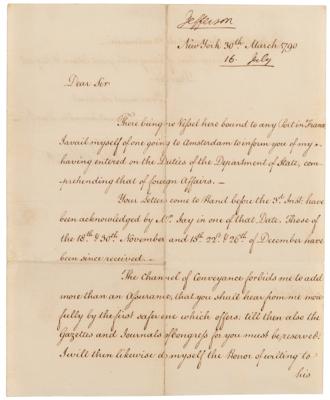 Jefferson
New York 30th March 1790
16. July
Dear Sir
There being no Vessel here bound to any Port in France
I avail myself of one going to Amsterdam to inform you of my
having entered on the Duties of the Department of State, com-
prehending that of foreign Affairs. —
Your Letters come to Hand before the 3d. Inst: have
been acknowledged by Mr. Jay in one of that Date. Those of
the 18th. & 30th. November and 15th. 22d. & 26th. of December have
been since received. —
The Channel of Conveyance forbids me to add
more than an Assurance, that you shall hear from me more
fully by the first safer one which offers: till then also the
Gazettes and Journals of Congress for you must be reserved.
I will then likewise do myself the Honor of writing to
his